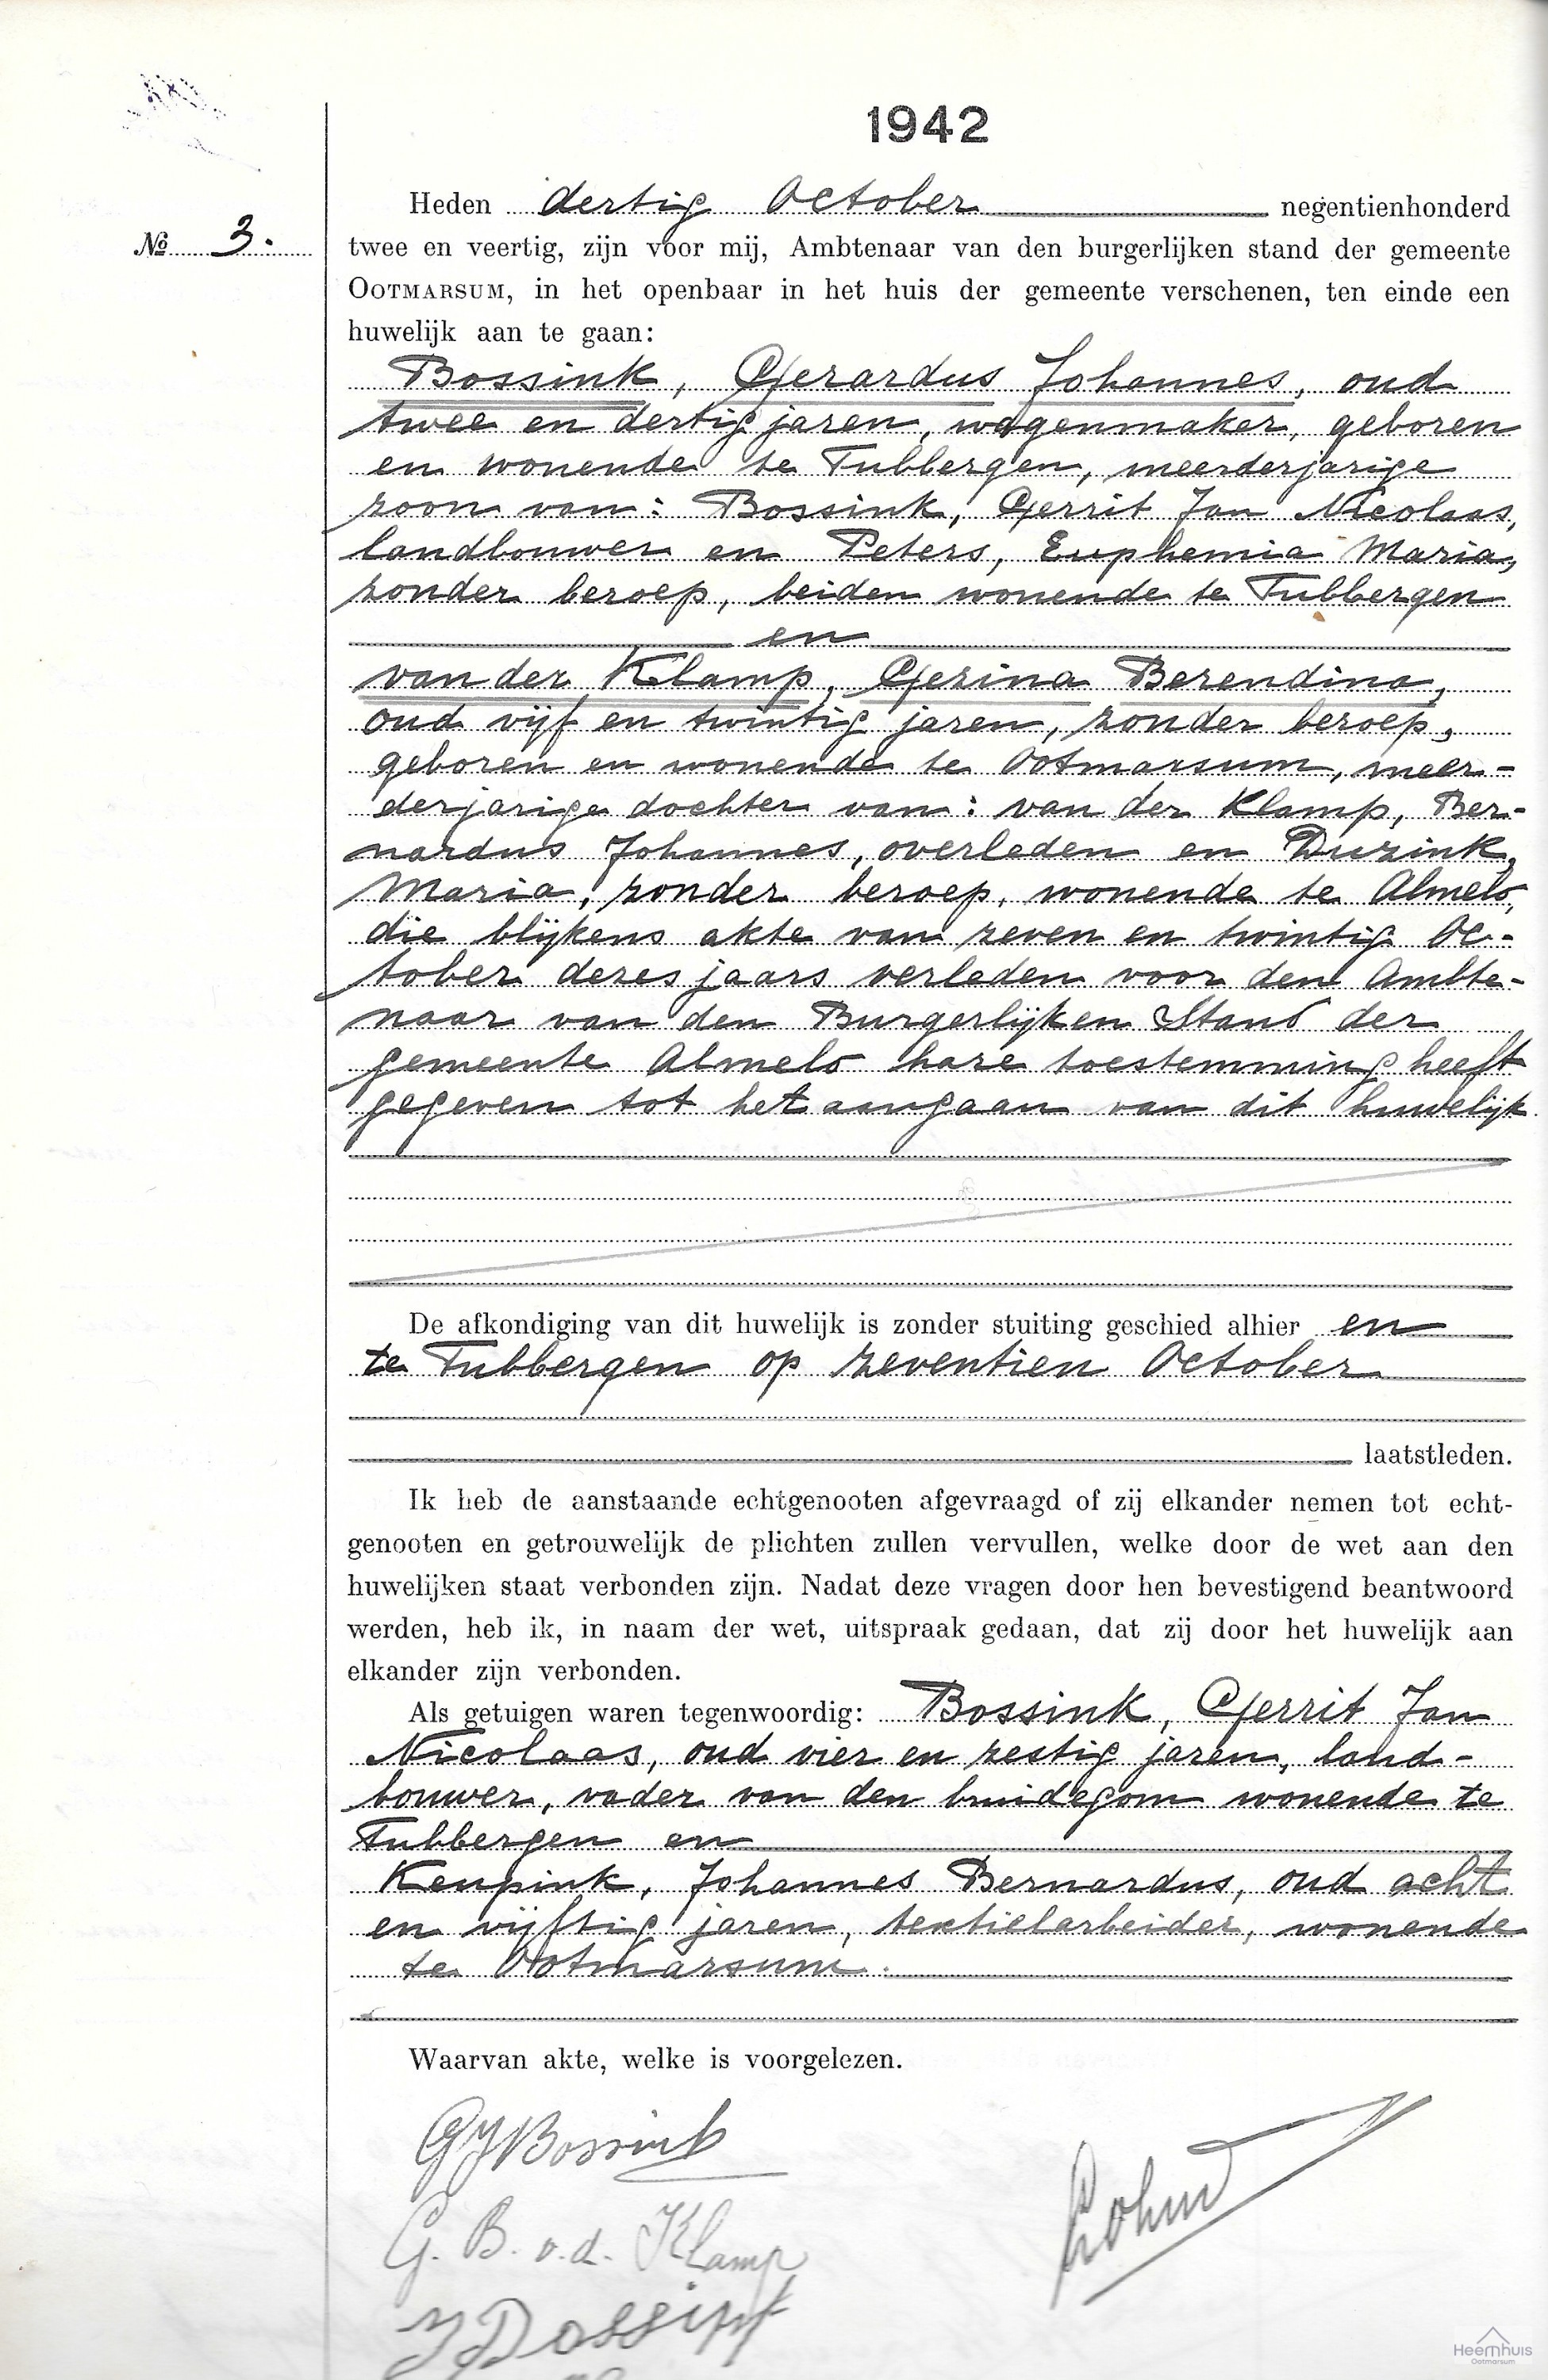 1942
Heden dertig October negentienhonderd
No 3.
twee en veertig, zijn voor mij, Ambtenaar van den burgerlijken stand der gemeente
OOTMARSUM, in het openbaar in het huis der gemeente verschenen, ten einde een
huwelijk aan te gaan:
Bossink, Gerardus Johannes, oud
twee en dertig jaren, wagenmaker, geboren
en wonende te Tubbergen, meerderjarige
zoon van: Bossink, Gerrit Jan Nicolaas,
landbouwer en Peters, Euphemia Maria,
zonder beroep, beiden wonende te Tubbergen
en
van der Klamp, Gezina Berendina,
oud vijf en twintig jaren, zonder beroep,
geboren en wonende te Ootmarsum, meer-
derjarige dochter van: van der Klamp, Ber-
nardus Johannes, overleden en Duzink,
Maria, zonder beroep, wonende te Almelo,
die blijkens akte van zeven en twintig Oc-
tober dezes jaars verleden voor den Ambte-
naar van den Burgerlijken Stand der
gemeente Almelo hare toestemming heeft
gegeven tot het aangaan van dit huwelijk
De afkondiging van dit huwelijk is zonder stuiting geschied alhier en
te Tubbergen op zeventien October
laatstleden.
Ik heb de aanstaande echtgenooten afgevraagd of zij elkander nemen tot echt-
genooten en getrouwelijk de plichten zullen vervullen, welke door de wet aan den
huwelijken staat verbonden zijn. Nadat deze vragen door hen bevestigend beantwoord
werden, heb ik, in naam der wet, uitspraak gedaan, dat zij door het huwelijk aan
elkander zijn verbonden.
Als getuigen waren tegenwoordig: Bossink, Gerrit Jan
Nicolaas, oud vier en zestig jaren, land-
bouwer, vader van den bruidegom wonende te
Tubbergen en
Keupink, Johannes Bernardus, oud acht
en vijftig jaren, textielarbeider, wonende
te Ootmarsum.
Waarvan akte, welke is voorgelezen.
GJ Bossink
G. B. v.d. Klamp
Heemhuis
Ootmarsum